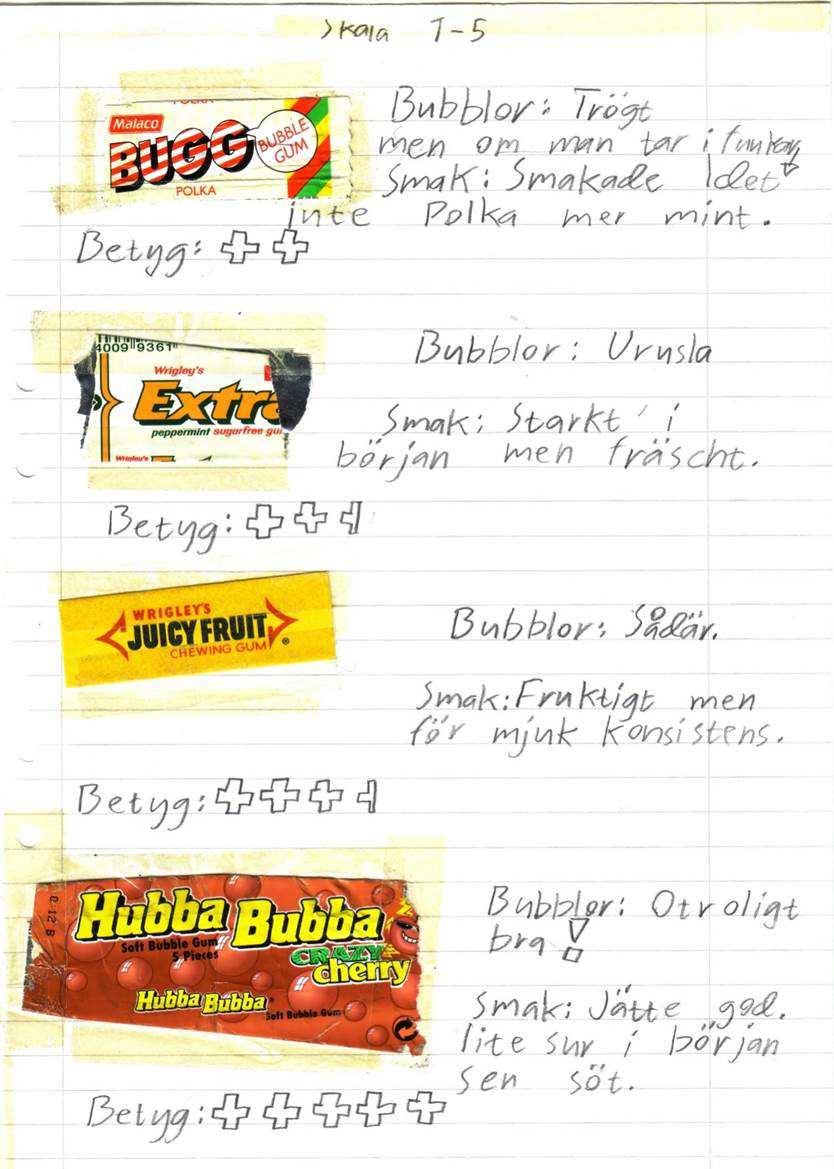 Skala 1-5
POLKA
Malaco
BUGG
BUBBLE
GUM
POLKA
Bubblor: Trögt
men om man tar i funkar
det
Smak: Smakade
inte Polka mer mint.
Betyg:
4009 9361
Wrigley's
Extra
peppermint sugarfree gu
Wrigley's
Bubblor: Urusla
Smak: Starkt i
början men fräscht.
Betyg:
WRIGLEY'S
JUICY FRUIT
®
CHEWING GUM
Bubblor: Sådär.
Smak: Fruktigt men
för mjuk konsistens.
Betyg:
Hubba Bubba
Soft Bubble Gum
5 Pieces
CRAZY
cherry
Hubba Bubba
Soft Bubble Gum
Bubblor: Otroligt
bra!
Smak: Jätte god.
lite sur i början
sen söt.
Betyg: